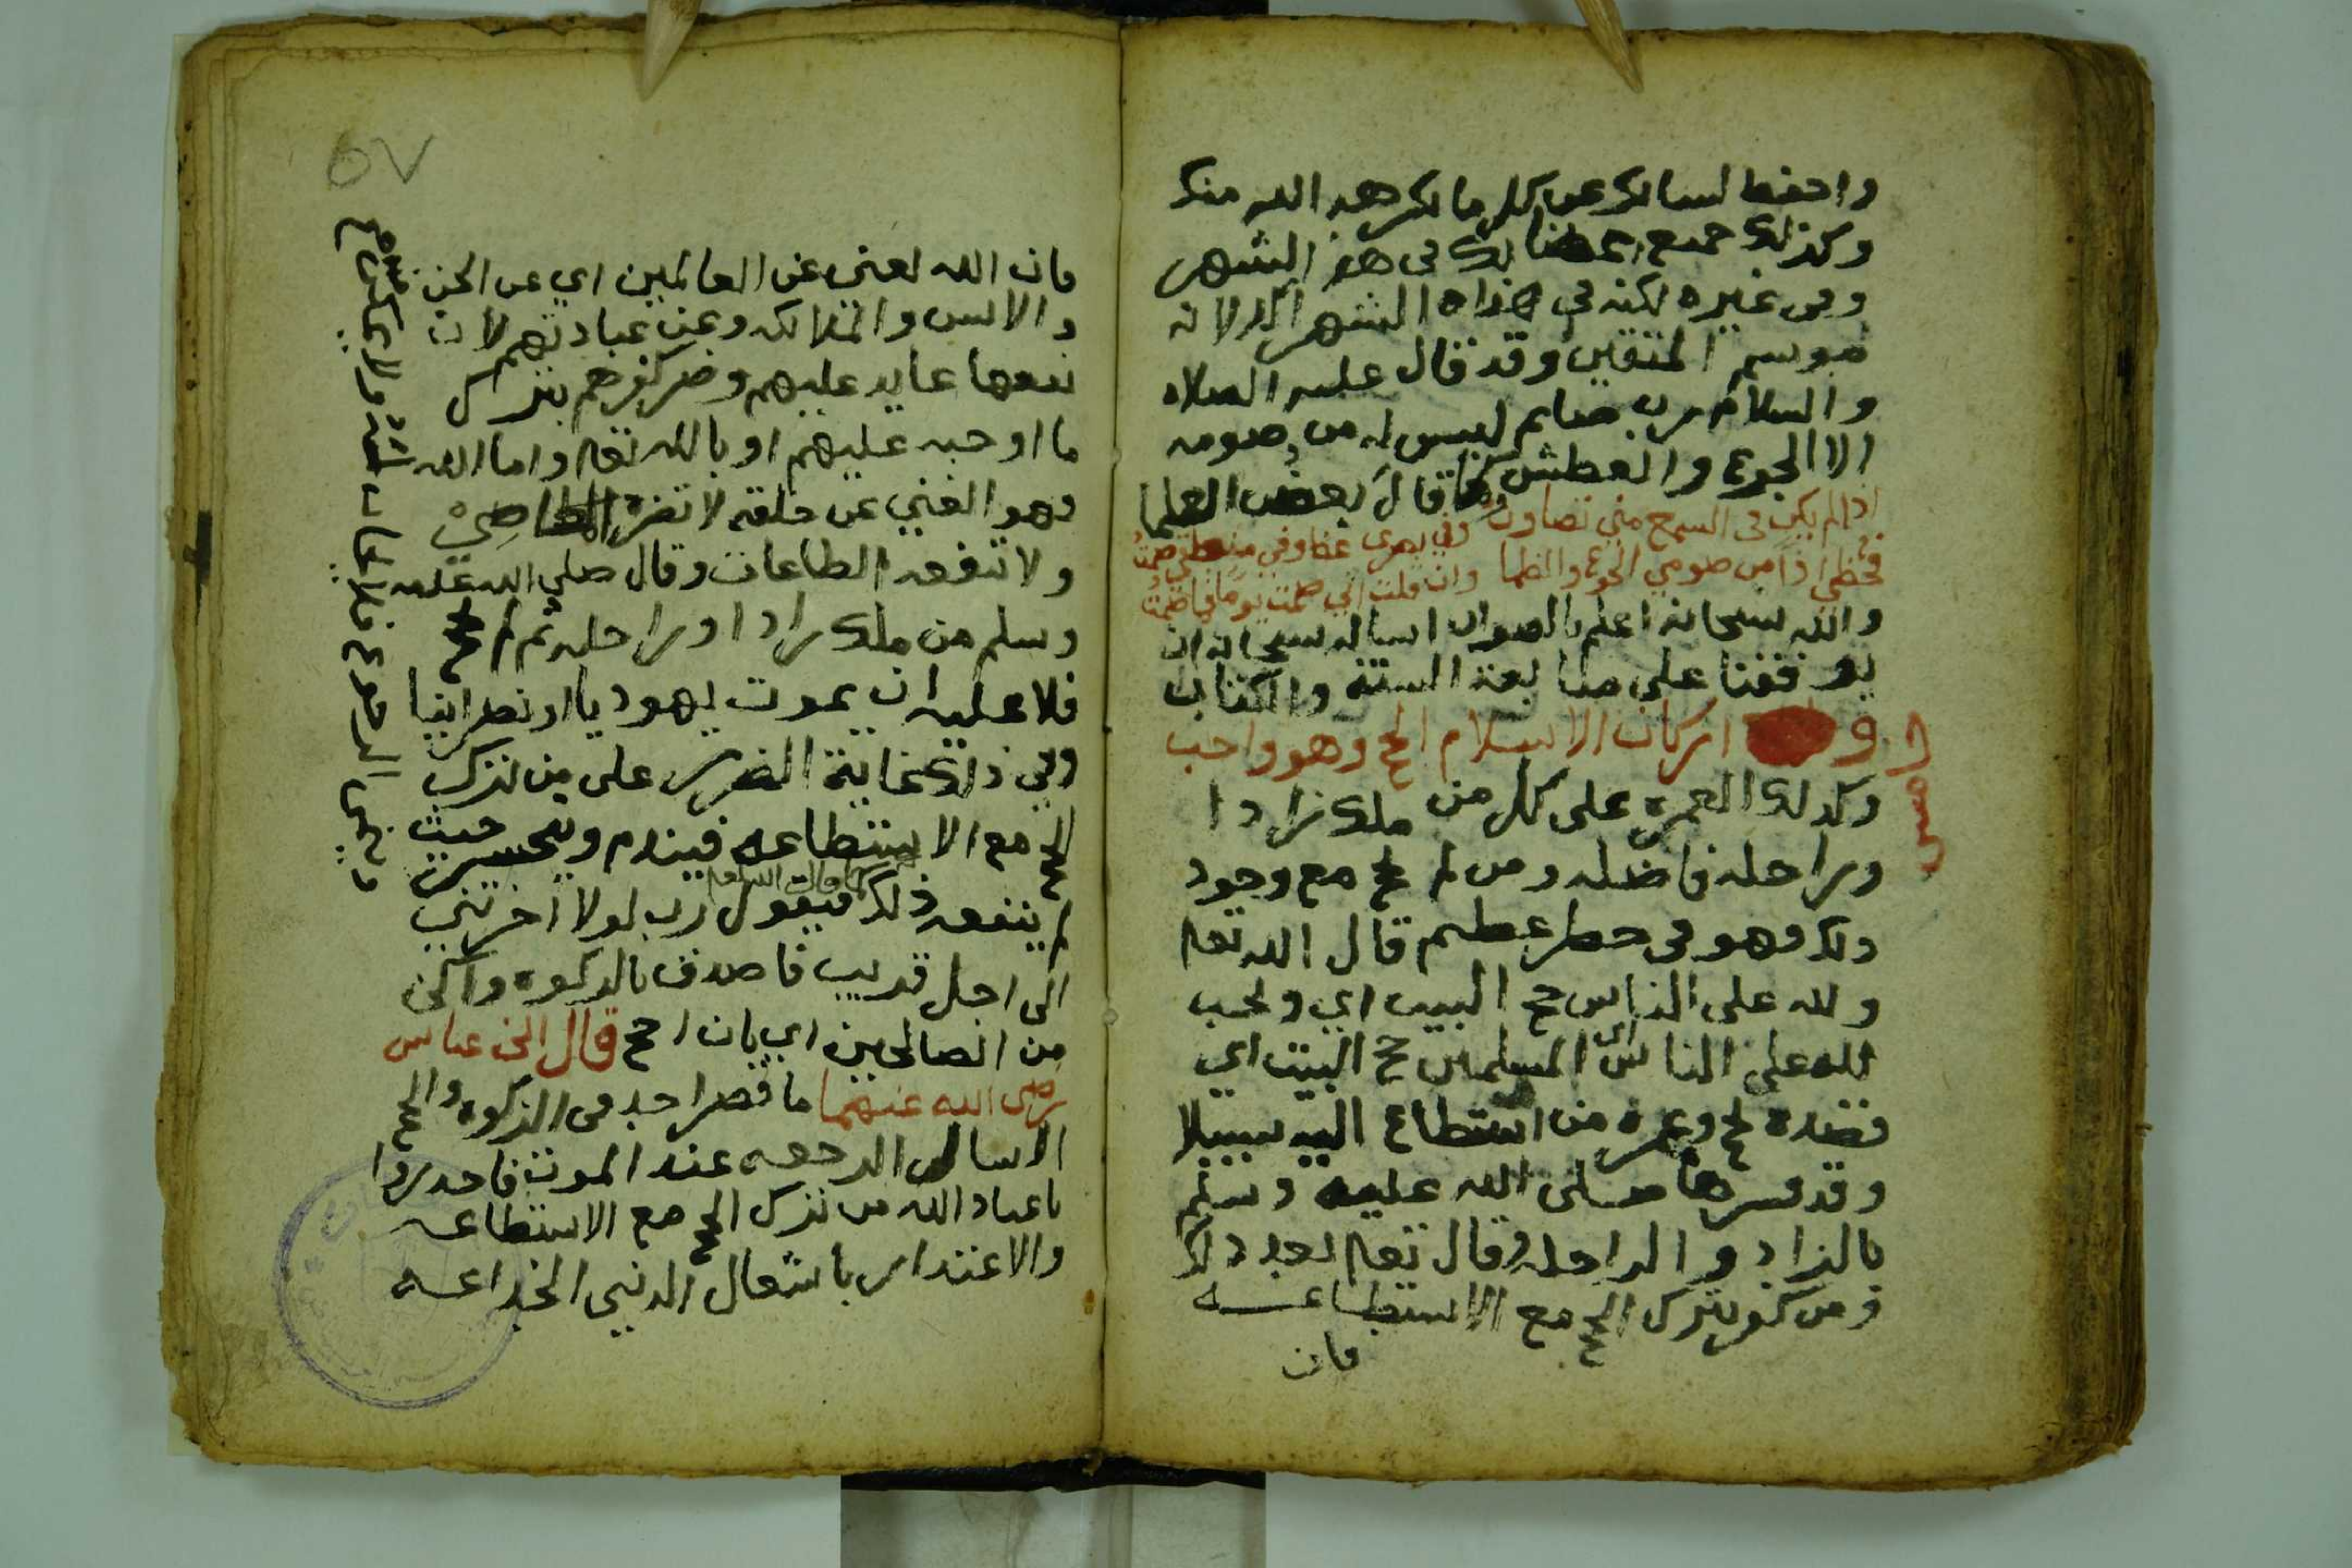 واحفظ لسانك عن كل ما يكرهه الله منك
وكذلك جميع اعضائك في هذا الشهر
وفي غيره لكنه في هذاه الشهر اكد لانه
موسم المتقين وقد قال عليه الصلاه
والسلام رب صايم ليس له من صومه
الا الجوع والعطش وكما قال بعض العلما
اذا لم يكن في السمع مني تصاون وفي بصري غض وفي منطقي صمت
فحظي اذًا من صومي الجوع والظما وان قلت اني صمت يومًا فما صمت
والله سبحانه اعلم بالصواب اساله سبحانه ان
يوفقنا على متابعة السنة والكتاب
اركان الاسلام الحج وهو واجب
وكذلك العمره على كل من ملك زادا
وراحله فاضله ومن لم يحج مع وجود
ذلك فهو في خطر عظيم قال الله تعا
ولله على الناس حج البيت اي ويجب
لله على الناس اي المسلمين حج البيت اي
قصده لحج وعمره من استطاع اليه سبيلا
وقد فسرها صلى الله عليه وسلم
بالزاد والراحله وقال تعا بعد ذلك
ومن كفر بترك الحج مع الاستطاعه
فان
٥٧
فان الله لغني عن العالمين اي عن الجن
والانس والملائكه وعن عبادتهم لان
نفعها عايد عليهم وضر كفرهم بترك
ما اوجبه عليهم او بالله تعا واما الله
فهو الغني عن خلقه لا تضره المعاصي
ولا تنفعه الطاعات وقال صلى الله عليه
وسلم من ملك زادا وراحله ثم لم يحج
فلا عليه ان يموت يهوديا او نصرانيا
وفي ذلك غاية الضرر على من ترك
الحج مع الاستطاعه فيندم ويتحسر حيث
لم ينفعه ذلك كما قال الله تعا فيقول رب لولا اخرتني
الى اجل قريب فاصدق بالزكوه واكن
من الصالحين اي بان احج قال ابن عباس
رضى الله عنهما ما قصر احد في الزكوه والحج
الا سال الرجعه عند الموت فاحذروا
يا عباد الله من ترك الحج مع الاستطاعه
والاعتذار باشغال الدنيى الخداعه